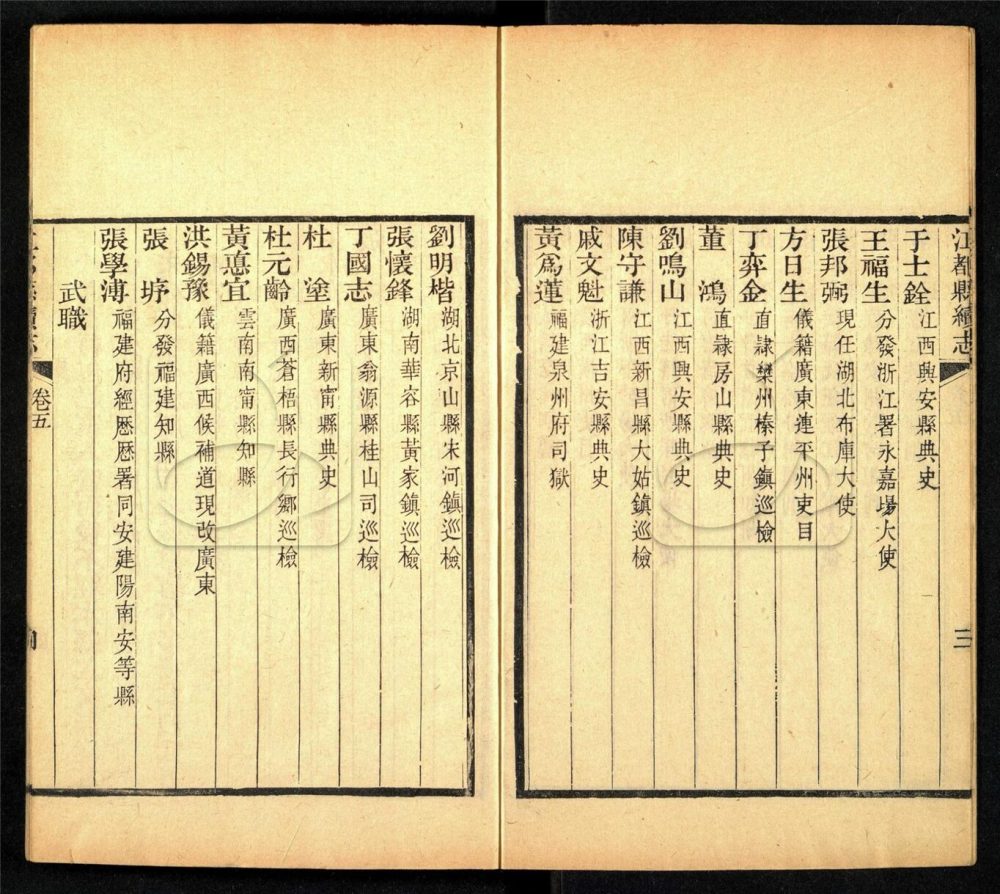 江都縣續志
三
于士銓 江西興安縣典史
王福生 分發浙江署永嘉場大使
張邦弼 現任湖北布庫大使
方日生 儀籍廣東連平州吏目
丁弈金 直隸欒州榛子鎮巡檢
董鴻 直隸房山縣典史
劉鳴山 江西興安縣典史
陳守謙 江西新昌縣大姑鎮巡檢
戚文魁 浙江吉安縣典史
黃爲蓮 福建泉州府司獄
劉明楷 湖北京山縣宋河鎮巡檢
張懷鋒 湖南華容縣黃家鎮巡檢
丁國志 廣東翁源縣桂山司巡檢
杜塗 廣東新甯縣典史
杜元齡 廣西蒼梧縣長行鄉巡檢
黃惪宜 雲南南甯縣知縣
洪錫豫 儀籍廣西候補道現改廣東
張垿 分發福建知縣
張學溥 福建府經歷歷署同安建陽南安等縣
武職
卷五